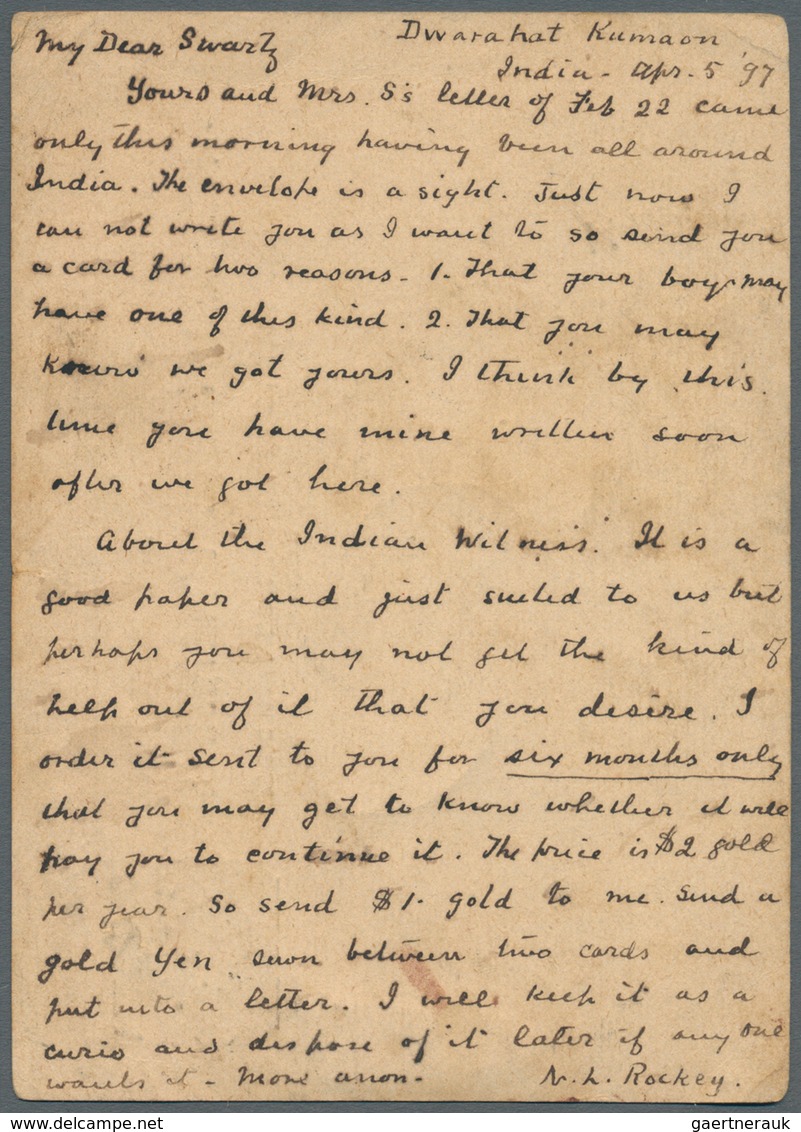 Dwarahat Kumaon
My Dear Swartz
India - Apr. 5 '97
Yours and Mrs. S's letter of Feb 22 came
only this morning having been all around
India. The envelope is a sight. Just now I
can not write you as I want to so send you
a card for two reasons - 1. That your boys may
have one of this kind. 2. That you may
know we got yours. I think by this
time you have mine written soon
after we got here.
About the Indian Witness. It is a
good paper and just suited to us but
perhaps you may not get the kind of
help out of it that you desire. I
order it sent to you for six months only
that you may get to know whether it will
pay you to continue it. The price is $2 gold
per year. So send $1. gold to me. Send a
gold Yen sewn between two cards and
put into a letter. I will keep it as a
curio and dispose of it later if any one
wants it - More anon -
N. L. Rockey.
gaertnerauk